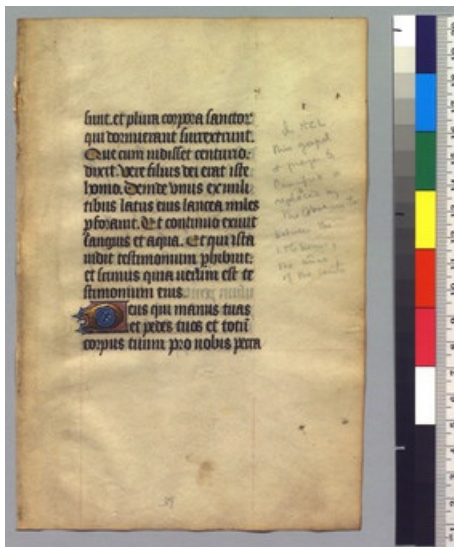 sunt. et plura corpora sanctor
qui dormierant surrexerunt.
Que cum uidisset centurio:
dixit. Vere filius dei erat iste
homo. Deinde vnus ex mili
tibus latus eius lancea miles
pforauit. Et continuo exiuit
sanguis et aqua. Et qui ista
uidit testimonium phibuit:
et scimus quia uerum est te
stimonium eius.
Deus qui manus tuas
et pedes tuos et totū
corpus tuum pro nobis pecca
this gospel
replaced by
between the
of the saints